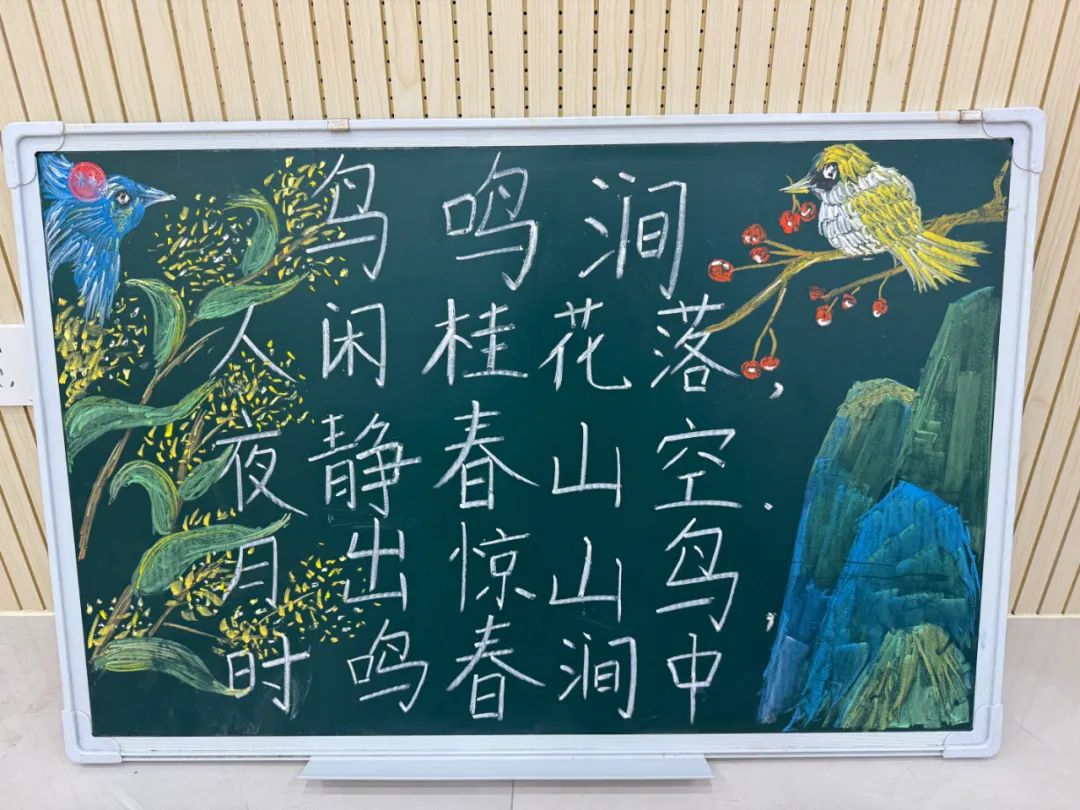 鸟鸣涧
人闲桂花落，
夜静春山空.
月出惊山鸟，
时鸣春涧中